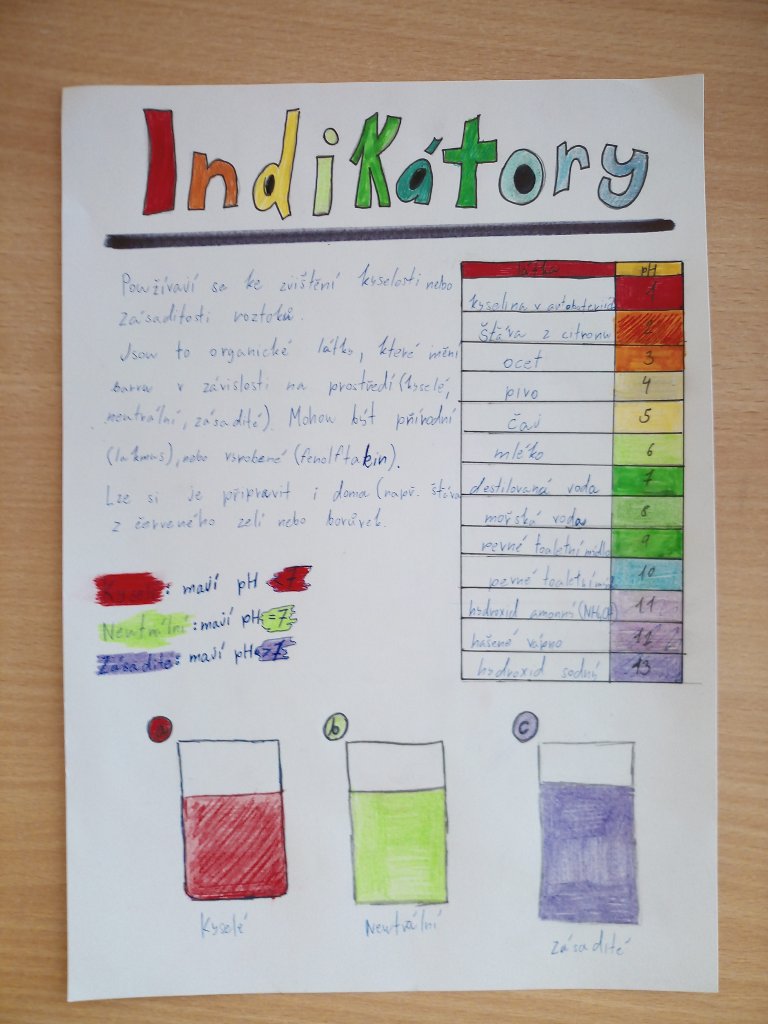 Indikátory
Používají se ke zvištění kyselosti nebo
zásaditosti roztoků.
Jsou to organické látky, které mění
barvu v závislosti na prostředí (kyselé,
neutrální, zásadité). Mohou být přírodní
(lakmus), nebo vyrobené (fenolftakin).
Lze si je připravit i doma (např. štáva
z červeného zelí nebo borůvek.
Kyselé: mají pH < 7
Neutrální: mají pH = 7
Zásadité: mají pH > 7
látka pH
kyselina v autobaterii 1
štáva z citronu 2
ocet 3
pivo 4
čaj 5
mléko 6
destilovaná voda 7
mořská voda 8
pevné toaletní mýdlo 9
pevné toaletní 10
hydroxid amonný (NH4OH) 11
hašené vápno 12
hydroxid sodný 13
a b c
Kyselé Neutrální Zásadité